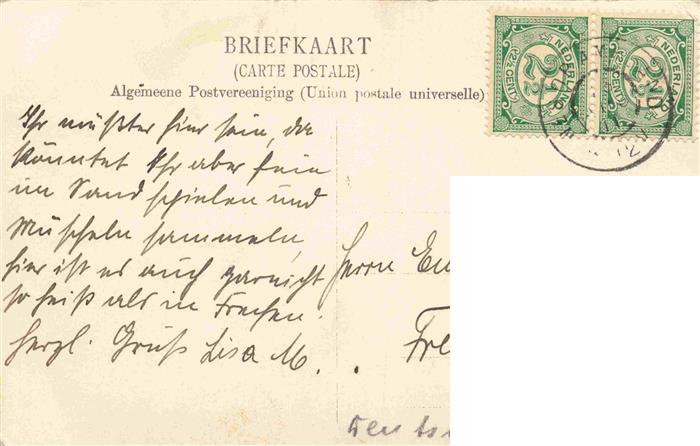 BRIEFKAART
(CARTE POSTALE)
Algemeene Postvereeniging (Union postale universelle)
NEDERLAND
2½
2½ CENT
NEDERLAND
2½
2½ CENT
Ihr müßtet hier sein, da
könntet Ihr aber fein
im Sand spielen und
Muscheln sammeln,
hier ist es auch garnicht
so heiß als in Frechen.
Herzl. Gruß Lisa M.
Herrn
Fre